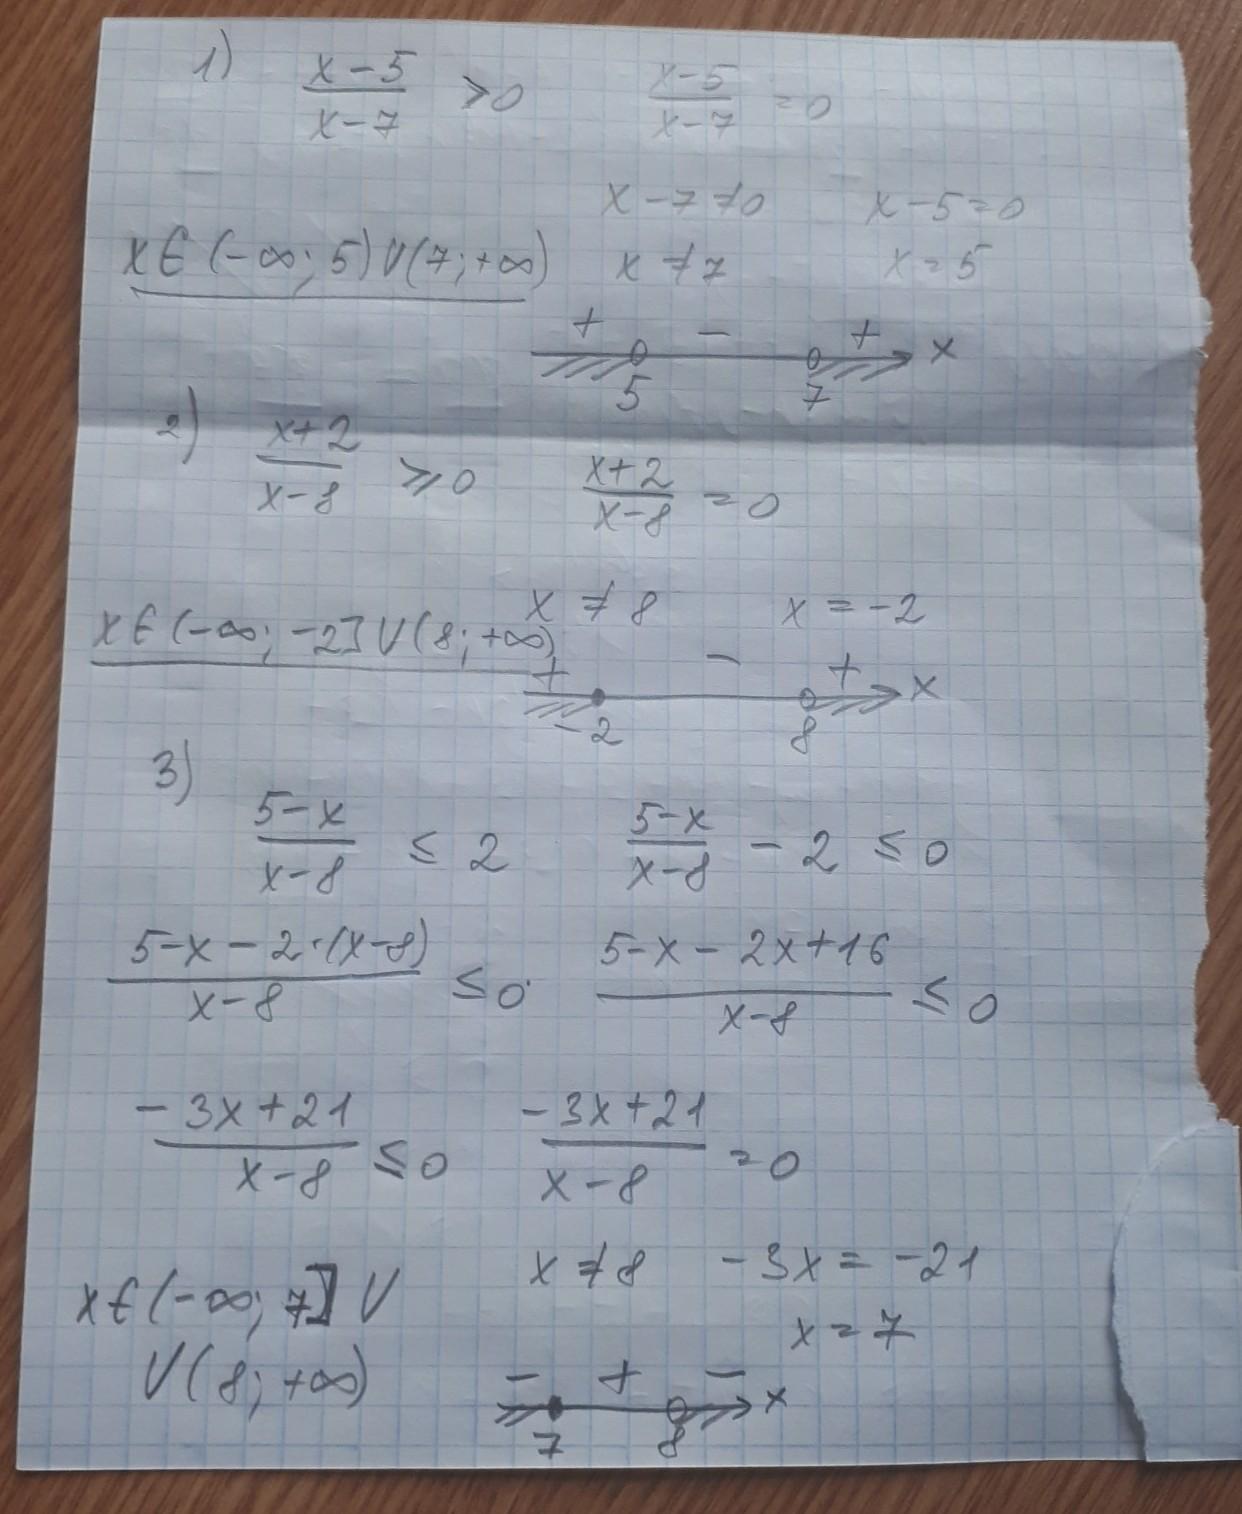 1) (x-5)/(x-7) >0    (x-5)/(x-7) =0
x-7≠0    x-5=0
x∈(-∞; 5)∪(7; +∞)    x≠7    x=5
+ - + x
5 7
2) (x+2)/(x-8) ⩾0    (x+2)/(x-8) =0
x≠8    x=-2
x∈(-∞; -2]∪(8; +∞)
+ - + x
-2 8
3)
(5-x)/(x-8) ≤ 2    (5-x)/(x-8) - 2 ≤ 0
(5-x-2·(x-8))/(x-8) ≤0    (5-x-2x+16)/(x-8) ≤ 0
(-3x+21)/(x-8) ≤0    (-3x+21)/(x-8) =0
x≠8    -3x=-21
x∈(-∞; 7]∪    x=7
∪(8; +∞)    - + - x
7 8